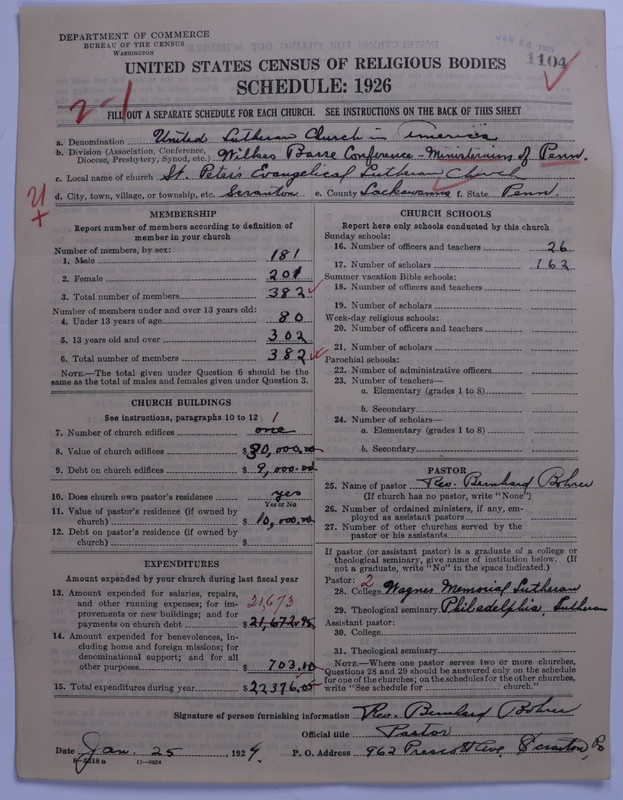 DEPARTMENT OF COMMERCE
BUREAU OF THE CENSUS
WASHINGTON
1104
UNITED STATES CENSUS OF RELIGIOUS BODIES
SCHEDULE: 1926
2-1
FILL OUT A SEPARATE SCHEDULE FOR EACH CHURCH. SEE INSTRUCTIONS ON THE BACK OF THIS SHEET
a. Denomination United Lutheran Church in America
b. Division (Association, Conference, Diocese, Presbytery, Synod, etc.) Wilkes Barre Conference - Ministerium of Penn.
c. Local name of church St. Peter's Evangelical Lutheran Church
d. City, town, village, or township, etc. Scranton e. County Lackawanna f. State Penn.
MEMBERSHIP
Report number of members according to definition of member in your church
Number of members, by sex:
1. Male 181
2. Female 201
3. Total number of members 382
Number of members under and over 13 years old:
4. Under 13 years of age 80
5. 13 years old and over 302
6. Total number of members 382
NOTE.—The total given under Question 6 should be the same as the total of males and females given under Question 3.
CHURCH BUILDINGS
See instructions, paragraphs 10 to 12
1
7. Number of church edifices one
8. Value of church edifices $30,000.00
9. Debt on church edifices $9,000.00
10. Does church own pastor's residence yes
Yes or No
11. Value of pastor's residence (if owned by church) $10,000.00
12. Debt on pastor's residence (if owned by church) $
EXPENDITURES
Amount expended by your church during last fiscal year
13. Amount expended for salaries, repairs, and other running expenses; for improvements or new buildings; and for payments on church debt $21,672.95
21,673
14. Amount expended for benevolences, including home and foreign missions; for denominational support; and for all other purposes $703.10
15. Total expenditures during year $22376.05
CHURCH SCHOOLS
Report here only schools conducted by this church
Sunday schools:
16. Number of officers and teachers 26
17. Number of scholars 162
Summer vacation Bible schools:
18. Number of officers and teachers
19. Number of scholars
Week-day religious schools:
20. Number of officers and teachers
21. Number of scholars
Parochial schools:
22. Number of administrative officers
23. Number of teachers—
a. Elementary (grades 1 to 8)
b. Secondary
24. Number of scholars—
a. Elementary (grades 1 to 8)
b. Secondary
PASTOR
25. Name of pastor Rev. Bernhard Bohrer
(If church has no pastor, write "None")
26. Number of ordained ministers, if any, employed as assistant pastors
27. Number of other churches served by the pastor or his assistants
If pastor (or assistant pastor) is a graduate of a college or theological seminary, give name of institution below. (If not a graduate, write "No" in the space indicated.)
Pastor: 2
28. College Wagner Memorial Lutheran
29. Theological seminary Philadelphia, Lutheran
Assistant pastor:
30. College
31. Theological seminary
NOTE.—Where one pastor serves two or more churches, Questions 28 and 29 should be answered only on the schedule for one of the churches; on the schedules for the other churches, write "See schedule for church."
Signature of person furnishing information Rev. Bernhard Bohrer
Official title Pastor
Date Jan. 25 1927.
P. O. Address 962 Prescott Ave, Scranton, Pa
8-5318 a 11-9004